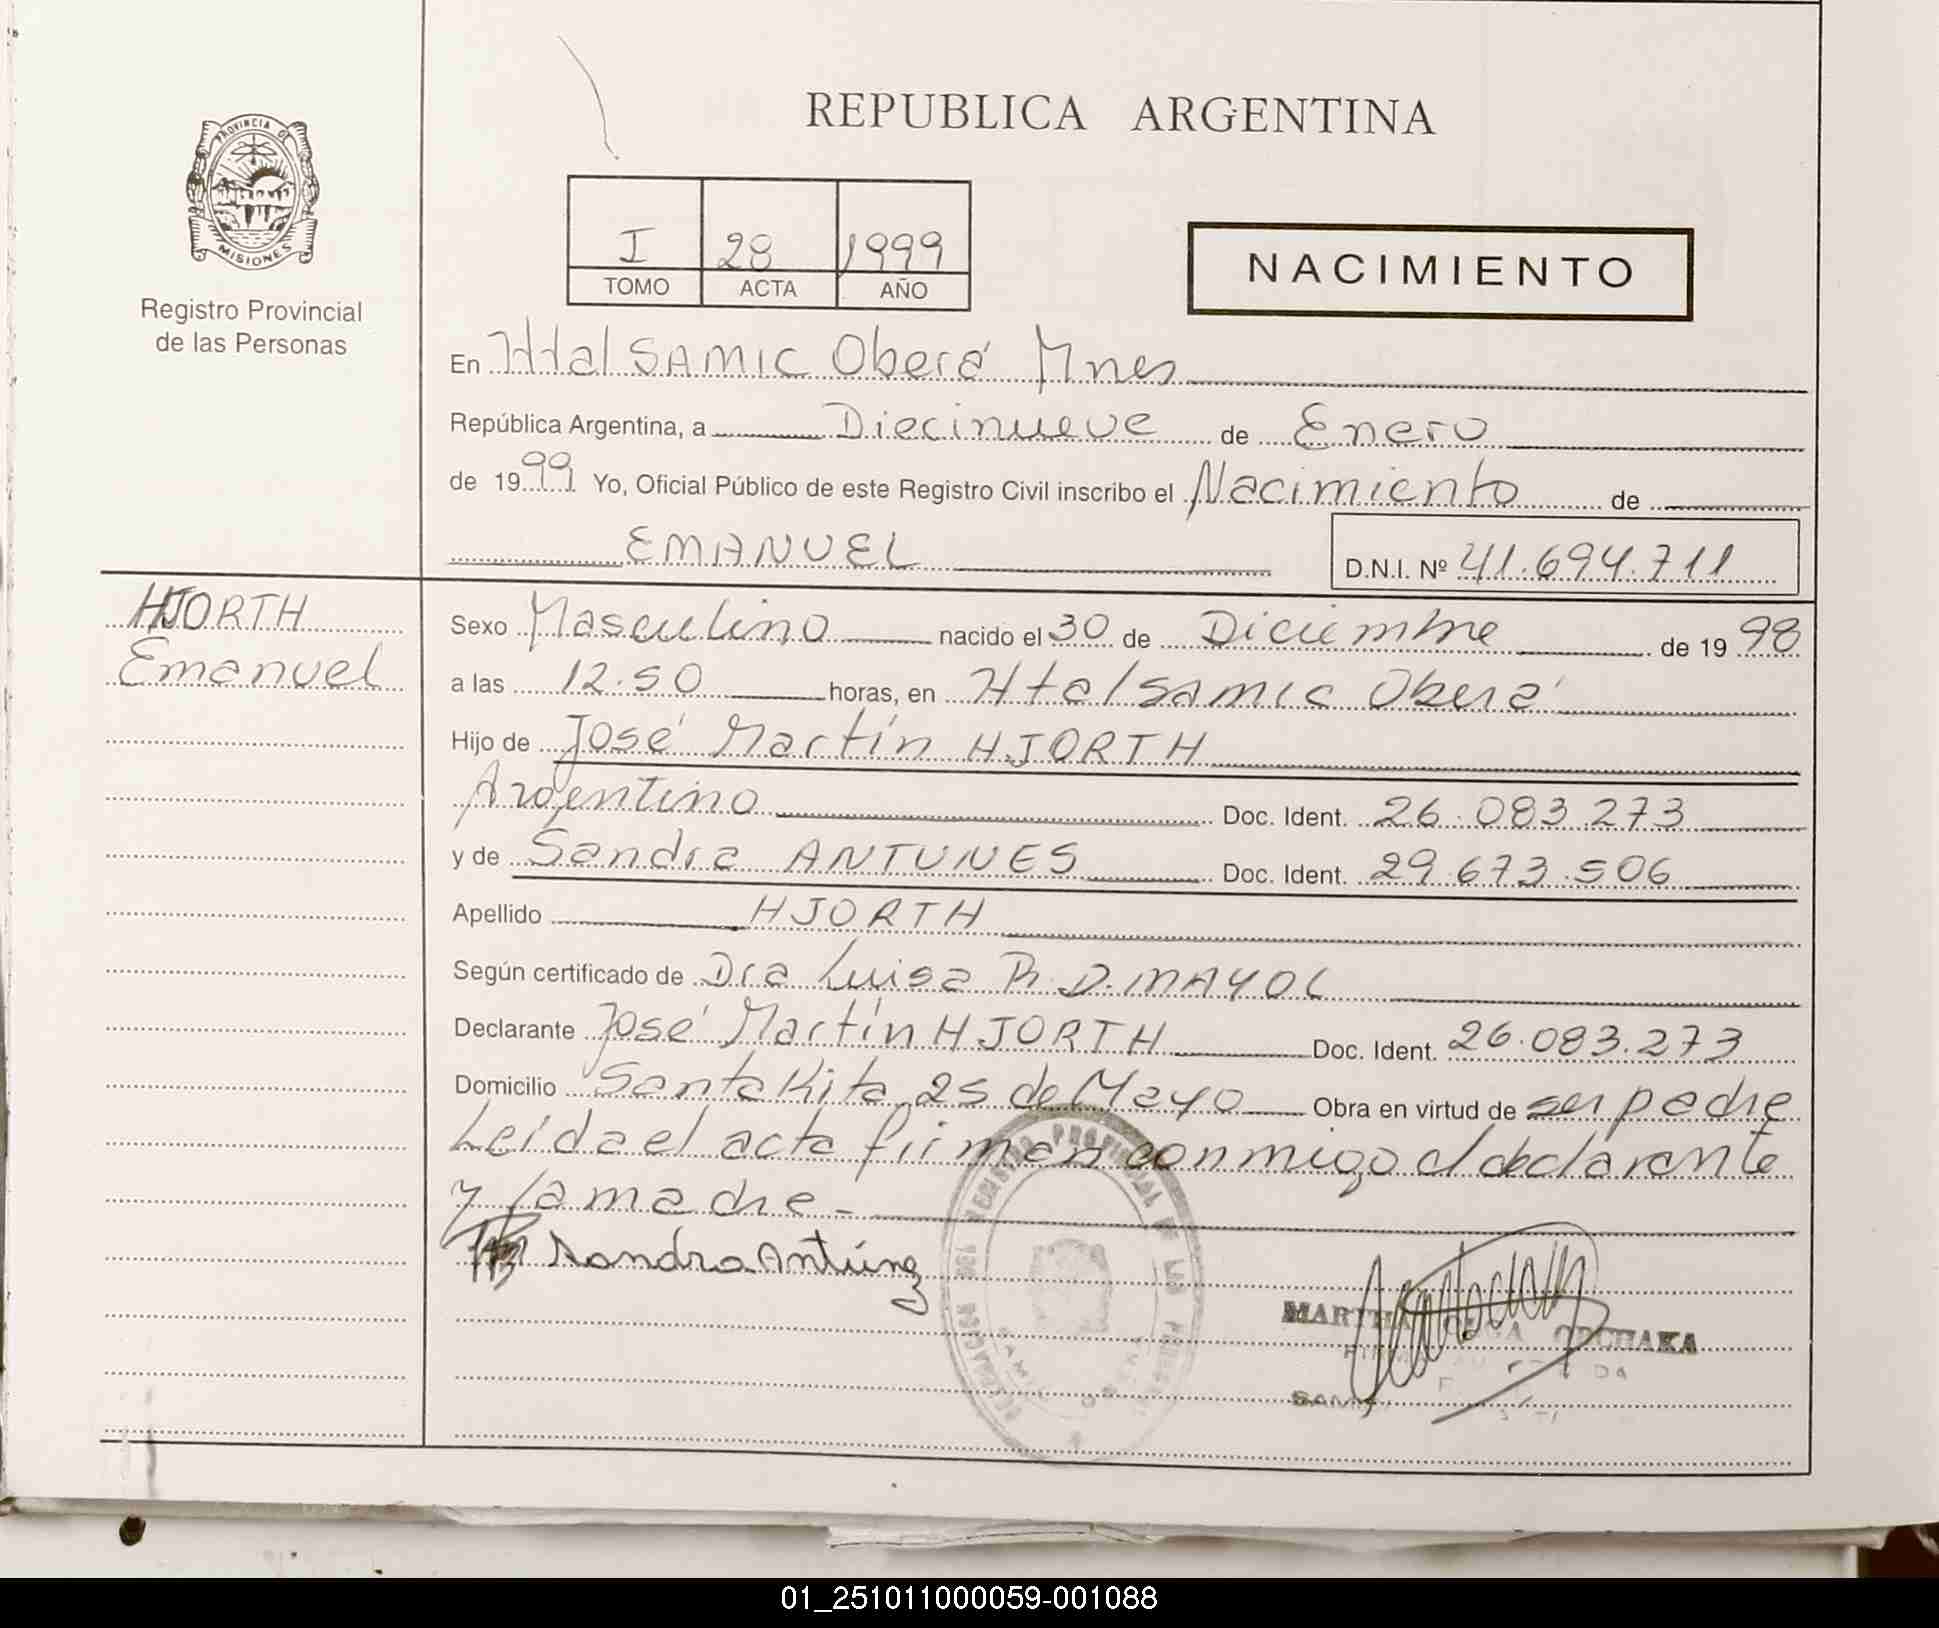 REPUBLICA ARGENTINA
PROVINCIA DE
MISIONES
Registro Provincial
de las Personas
I 28 1999
TOMO ACTA AÑO
NACIMIENTO
En Htal SAMIC Oberá Mnes
República Argentina, a Diecinueve de Enero
de 1999 Yo, Oficial Público de este Registro Civil inscribo el Nacimiento de
EMANUEL
D.N.I. Nº 41.694.711
HJORTH
Emanuel
Sexo Masculino nacido el 30 de Diciembre de 1998
a las 12.50 horas, en Htal SAMIC Oberá
Hijo de José Martín HJORTH
Argentino Doc. Ident. 26.083.273
y de Sandra ANTUNES Doc. Ident. 29.673.506
Apellido HJORTH
Según certificado de Dra Luisa R. D. MAYOL
Declarante José Martín HJORTH Doc. Ident. 26.083.273
Domicilio Santa Rita 25 de Mayo Obra en virtud de ser padre
Leída el acta firman conmigo el declarante
y la madre.-
Sandra Antúnez
DELEGACION DEL REGISTRO PROVINCIAL DE LAS
MARTHA OLGA
SAMIC
01_251011000059-001088